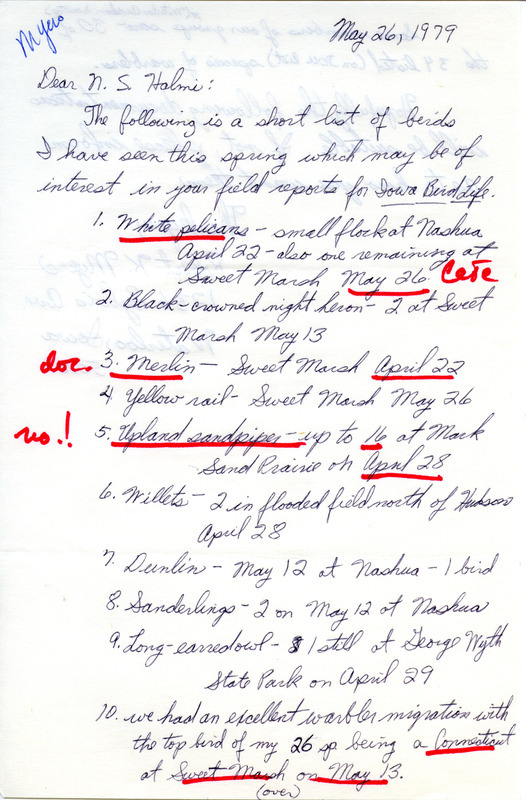 Myers
May 26, 1979
Dear N. S. Halmi:
The following is a short list of birds
I have seen this spring which may be of
interest in your field reports for Iowa Bird Life.
1. White pelicans - small flock at Nashua
April 22 - also one remaining at
Sweet Marsh May 26.
2. Black-crowned night heron - 2 at Sweet
Marsh May 13
doc. 3. Merlin - Sweet Marsh April 22
4 Yellow rail - Sweet Marsh May 26
no.! 5. Upland sandpiper - up to 16 at Mark
Sand Prairie on April 28
6. Willets - 2 in flooded field north of Hudson
April 28
7. Dunlin - May 12 at Nashua - 1 bird
8. Sanderlings - 2 on May 12 at Nashua
9. Long-eared owl - 1 still at George Wyth
State Park on April 29
10. we had an excellent warbler migration with
the top bird of my 26 sp being a Connecticut
at Sweet Marsh on May 13.
(over)